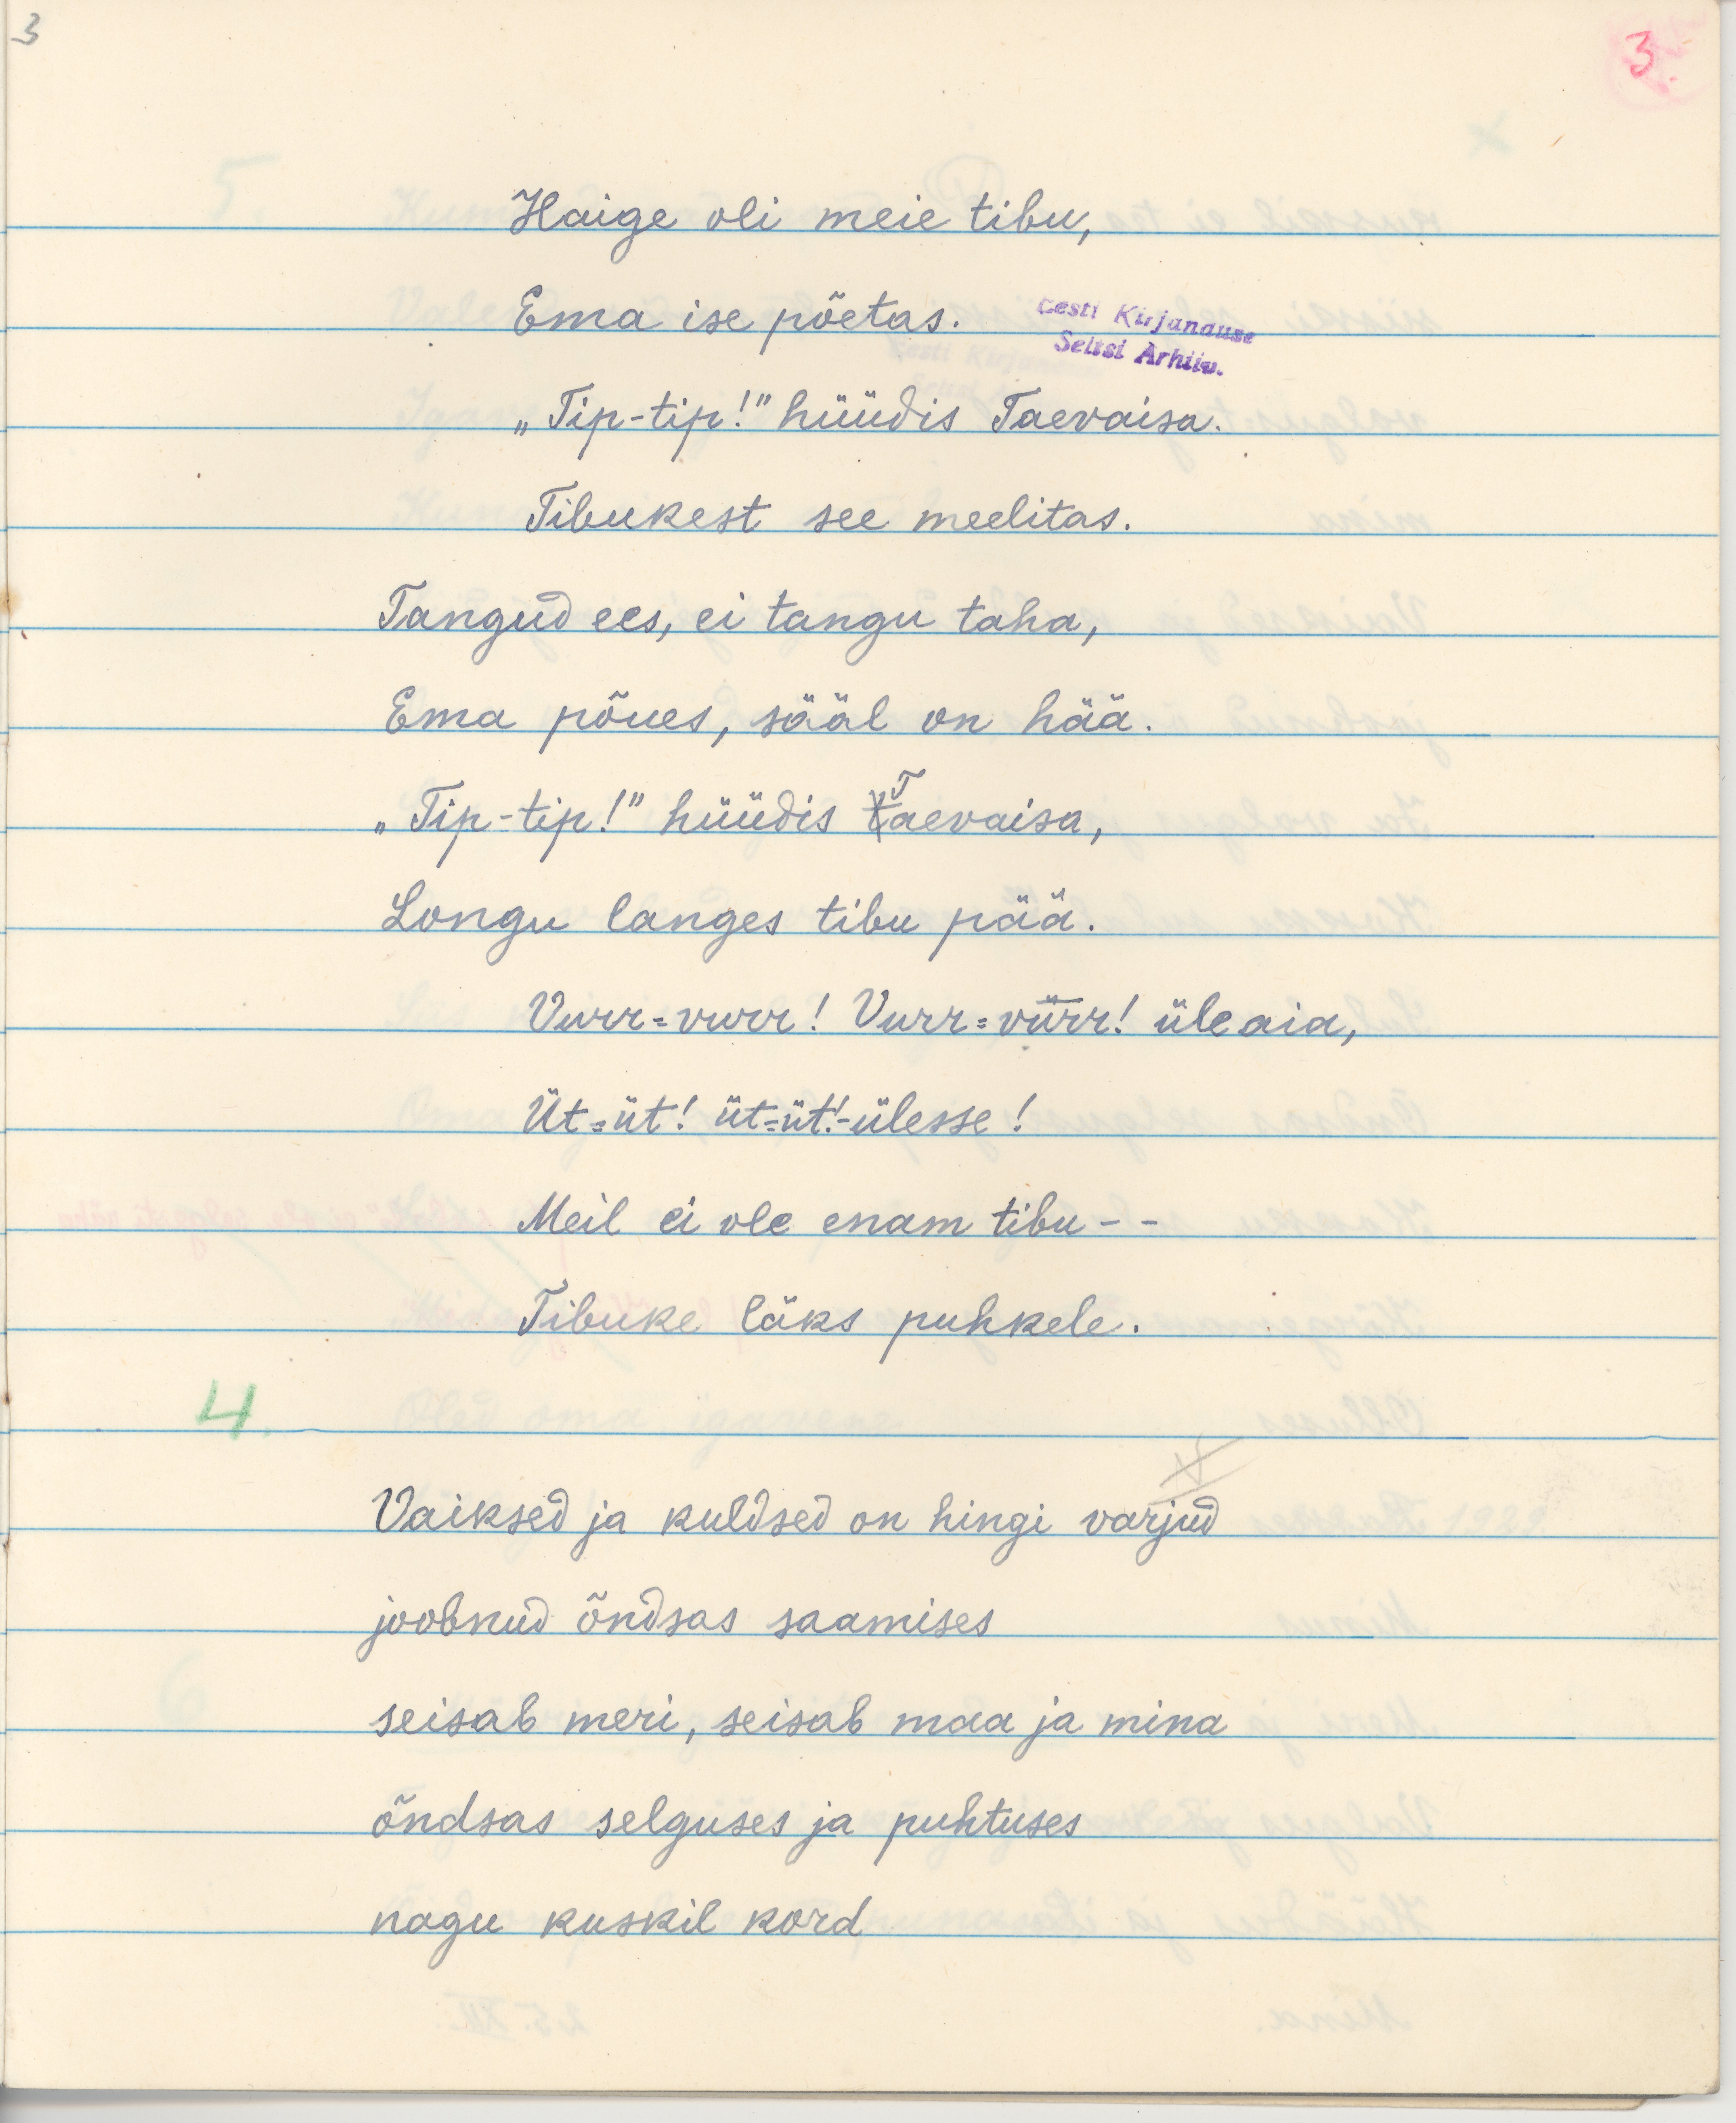 3
3.
Haige oli meie tibu,
Ema ise põetas.
Eesti Kirjanduse
Seltsi Arhiiv.
„Tip-tip!" hüüdis Taevaisa.
Tibukest see meelitas.
Tangud ees, ei tangu taha,
Ema põues, sääl on hää.
„Tip-tip!" hüüdis Taevaisa,
Longu langes tibu pää.
Vurr=vurr! Vurr=vürr! üle aia,
Üt=üt! üt=üt!-ülesse!
Meil ei ole enam tibu--
Tibuke läks puhkele.
4.
Vaiksed ja kuldsed on hingi varjud
joobnud õndsas saamises
seisab meri, seisab maa ja mina
õndsas selguses ja puhtuses
nagu kuskil kord